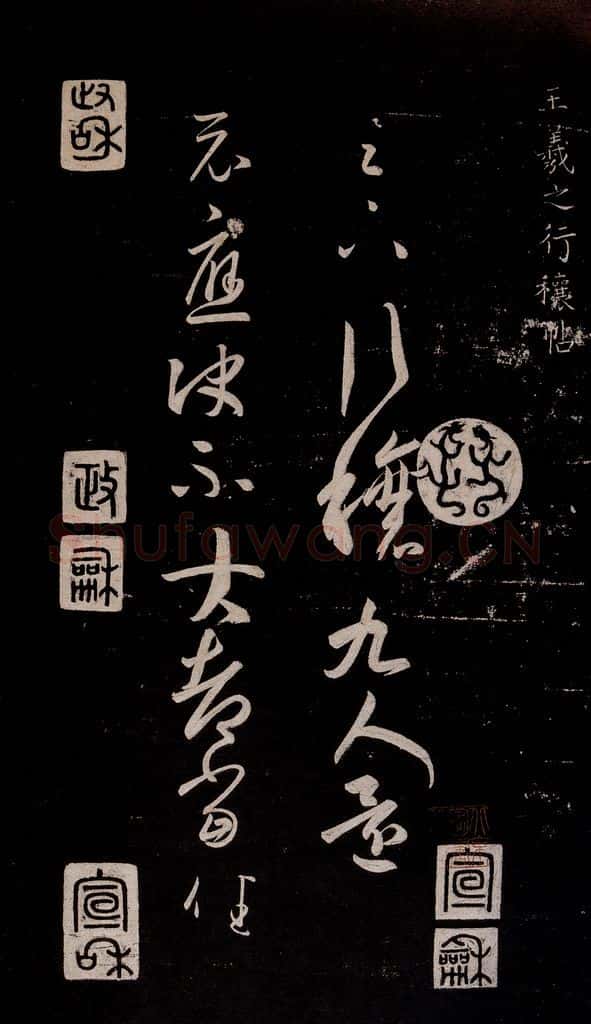 王羲之行穰帖
足下行穰九人還
示應決不大都當佳
政和
政龢
宣和
宣龢
Shufawang.CN